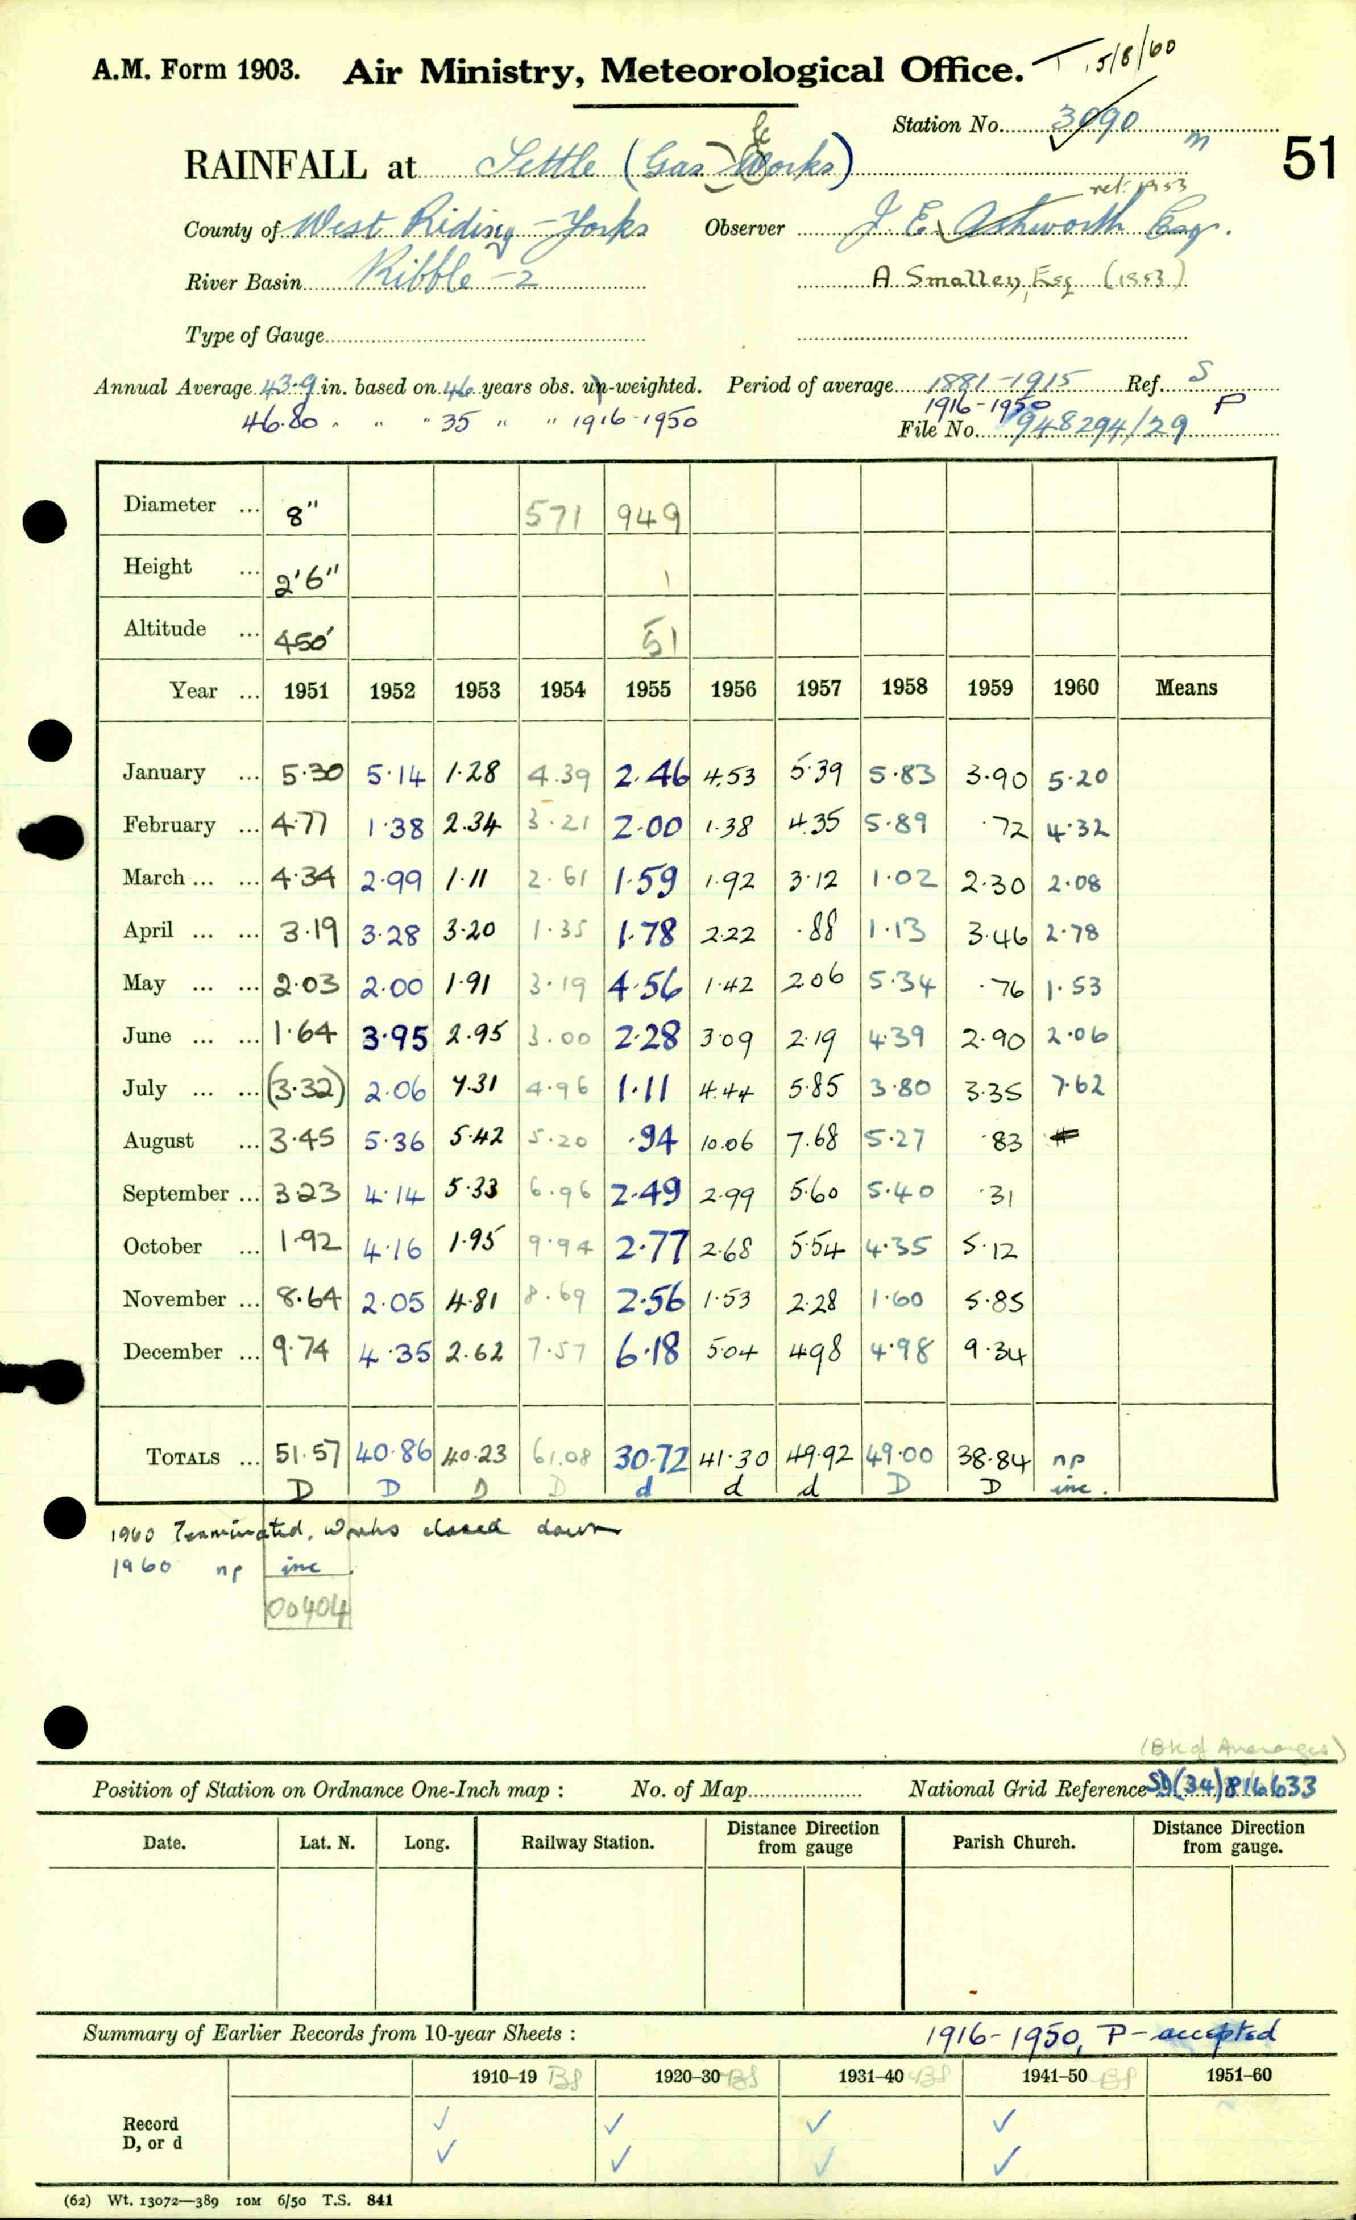 A.M. Form 1903. Air Ministry, Meteorological Office. T. 5/8/60
Station No. 3090 m
51
RAINFALL at Settle (Gas Works)
ret. 1953
County of West Riding - Yorks Observer J. E. Ashworth Esq.
River Basin Ribble - 2 A Smalley, Esq (1953)
Type of Gauge
Annual Average 43.9 in. based on 46 years obs. un-weighted. Period of average 1881-1915 Ref. S
46.80 " " " 35 " " 1916-1950 1916-1950 P
File No. 948294/29
Diameter ... 8" 571 949
Height ... 2'6" 1
Altitude ... 450' 51
Year ... 1951 1952 1953 1954 1955 1956 1957 1958 1959 1960 Means
January ... 5.30 5.14 1.28 4.39 2.46 4.53 5.39 5.83 3.90 5.20
February ... 4.77 1.38 2.34 3.21 2.00 1.38 4.35 5.89 .72 4.32
March ... ... 4.34 2.99 1.11 2.61 1.59 1.92 3.12 1.02 2.30 2.08
April ... ... 3.19 3.28 3.20 1.35 1.78 2.22 .88 1.13 3.46 2.78
May ... ... 2.03 2.00 1.91 3.19 4.56 1.42 2.06 5.34 .76 1.53
June ... ... 1.64 3.95 2.95 3.00 2.28 3.09 2.19 4.39 2.90 2.06
July ... ... (3.32) 2.06 7.31 4.96 1.11 4.44 5.85 3.80 3.35 7.62
August ... 3.45 5.36 5.42 5.20 .94 10.06 7.68 5.27 .83
September ... 3.23 4.14 5.33 6.96 2.49 2.99 5.60 5.40 .31
October ... 1.92 4.16 1.95 9.94 2.77 2.68 5.54 4.35 5.12
November ... 8.64 2.05 4.81 8.69 2.56 1.53 2.28 1.60 5.85
December ... 9.74 4.35 2.62 7.57 6.18 5.04 4.98 4.98 9.34
TOTALS ... 51.57 40.86 40.23 61.08 30.72 41.30 49.92 49.00 38.84 np
D D D D d d d D D inc.
1960 Terminated, Works closed down
1960 np inc.
00404
(Bk of Averages)
Position of Station on Ordnance One-Inch map : No. of Map National Grid Reference SD(34)816633
Date. Lat. N. Long. Railway Station. Distance from Direction gauge Parish Church. Distance from Direction gauge.
Summary of Earlier Records from 10-year Sheets : 1916-1950, P - accepted
1910–19 1920–30 1931–40 1941–50 1951–60
Record ✓ ✓ ✓ ✓
D, or d ✓ ✓ ✓ ✓
(62) Wt. 13072—389 10M 6/50 T.S. 841